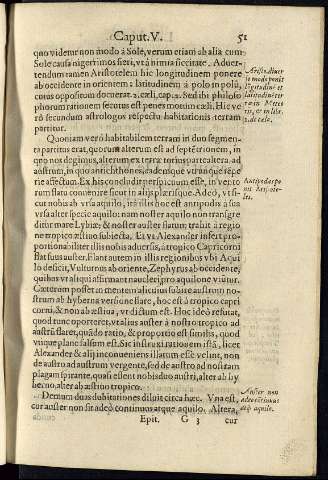 Caput. V. 51
quo videtur non modò à Sole, verum etiam ab alia cum
Sole causa nigerrimos fieri, vt à nimia siccitate. Aduer-
tendum tamen Aristotelem hic longitudinem ponere
ab occidente in orientem: latitudinem à polo in polũ,
cotus oppositum docuerat. 2. cæli, cap. 2. Sed ibi philoso
phorum rationem secutus est penes motum cæli: Hic ve
rò secundum astrologos respectu habitationis terram
partitur.
Quoniam verò habitabilem terram in duo segmen-
ta partitus erat, quorum alterum est ad septētrionem, in
quo nos degimus, alterum ex terræ torius parte altera, ad
austrum, in quo antichthones, eadémque vtranque répe
rie affectum. Ex his concludit perspicuum esse, in vento
rum flatu conuenire sicut in alijs plærisque. Adeò, vt si-
cut nobis ab vrsa aquilo, ità illis hoc est antipodis à sua
vrsa alter specie aquilo: nam noster aquilo non transgre
ditur mare Lybiæ: & noster flatum; trahit à regio
ne tropico æstiuo subiecta. Et vt Alexander insert pro-
portionabiliter illis nobis aduersis, à tropico Capricorni
flat suus auster. Flant autem in illis regionibus vbi Aqui
lo deficit, Vulturnus ab oriente, Zephyrus ab occidente,
quibus vt aliqui affirmant naucleri pro aquilone vtũtur.
Cæterum posset in mentem alicuius subire austrum no-
strum ab hyberna versione flare, hoc est à tropico capri
corni, & non ab æstiua, vt dictum est. Hoc ideò refutat,
quod tunc oporteret, vt alius auster à nostro tropico ad
austrũ flaret, quãdo ratio, & proportio est similis, quod
vtique plane falsum est. Sic instruxi rationem istã, licet
Alexander & alij inconueniens illatum esse velint, non
de austro ad austrum vergente, sed de austro ad nostram
plagam spirante, quasi essent nobis duo austri, alter ab hy
berno, alter ab æstiuo tropico.
Demum duas dubitationes diluit circa hæc. Vna est,
cur auster non sit adeò continuus atque aquilo. Altera,
Epit. G 3 cur
Aristo. diuer
Antipodes po
nit Aristote-
les.
Auster non
adeo cõtinuus
atq; aquilo.